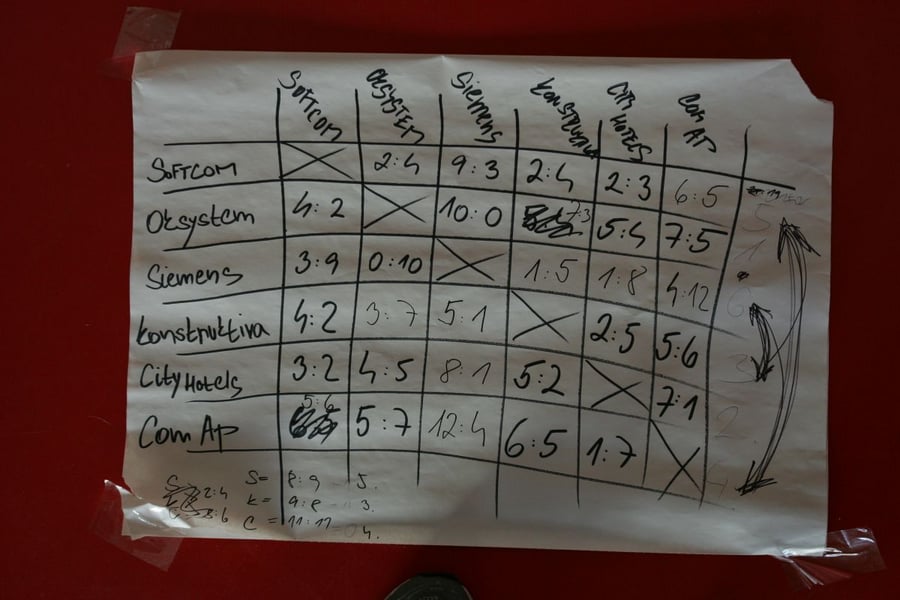 SOFTCOM OKSYSTEM Siemens KONSTRUKTIVA CITY HOTELS COM AP
SOFTCOM 2:4 9:3 2:4 2:3 6:5 5
Oksystem 4:2 10:0 7:3 5:4 7:5 1
Siemens 3:9 0:10 1:5 1:8 4:12 6
Konstruktiva 4:2 3:7 5:1 2:5 5:6 3
City Hotels 3:2 4:5 8:1 5:2 7:1 2.
Com Ap 5:6 5:7 12:4 6:5 1:7 4
S 2:4 S= 8:9 5.
K K= 9:8 3.
C 5:6 C = 11:11 4.